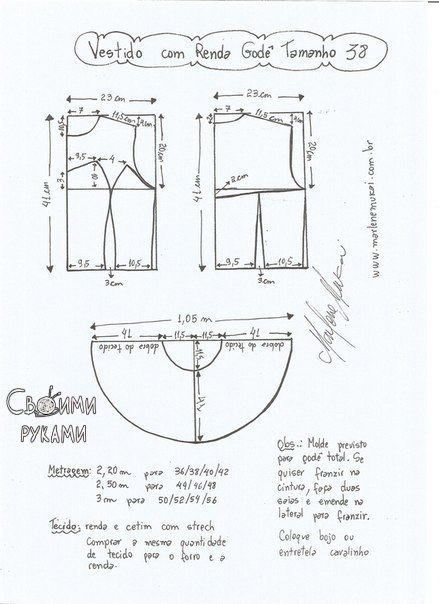 Vestido com Renda Godê Tamanho 38
23 cm
23 cm
7
11,5 cm
7
11,5cm
20cm
20cm
41 cm
41 cm
9,5
4
3
2 cm
9,5
10,5
9,5
10,5
3cm
3cm
www.marlenemukai.com.br
1,05 m
41
11,5
11,5
41
dobra do tecido
dobra do tecido
11,5
41
Своими
руками
Metragem: 2,20m para 36/38/40/42
2,50m para 44/46/48
3m para 50/52/54/56
Tecido: renda e cetim com strech
Comprar a mesma quantidade
de tecido para o forro e a
renda.
Obs.: Molde previsto
para godê total. Se
quiser franzir na
cintura, faça duas
saias e emende na
lateral para franzir.
Coloque bojo ou
entretela cavalinho